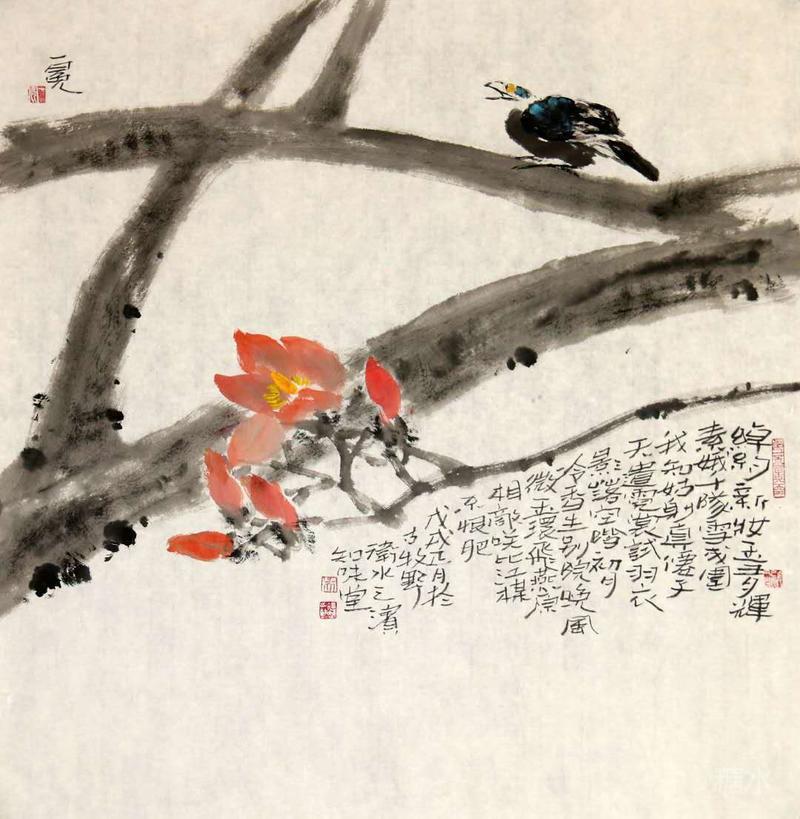 綽約新妝玉有輝
素娥千隊雪成圍
我知姑射真僊子
天遣霓裳試羽衣
影落空階初月
冷香生別院晚風
微玉環飛燕原
相敵咲比江楳
不恨肥
戊戌正月於
古牧野
衛水之濱
知堂